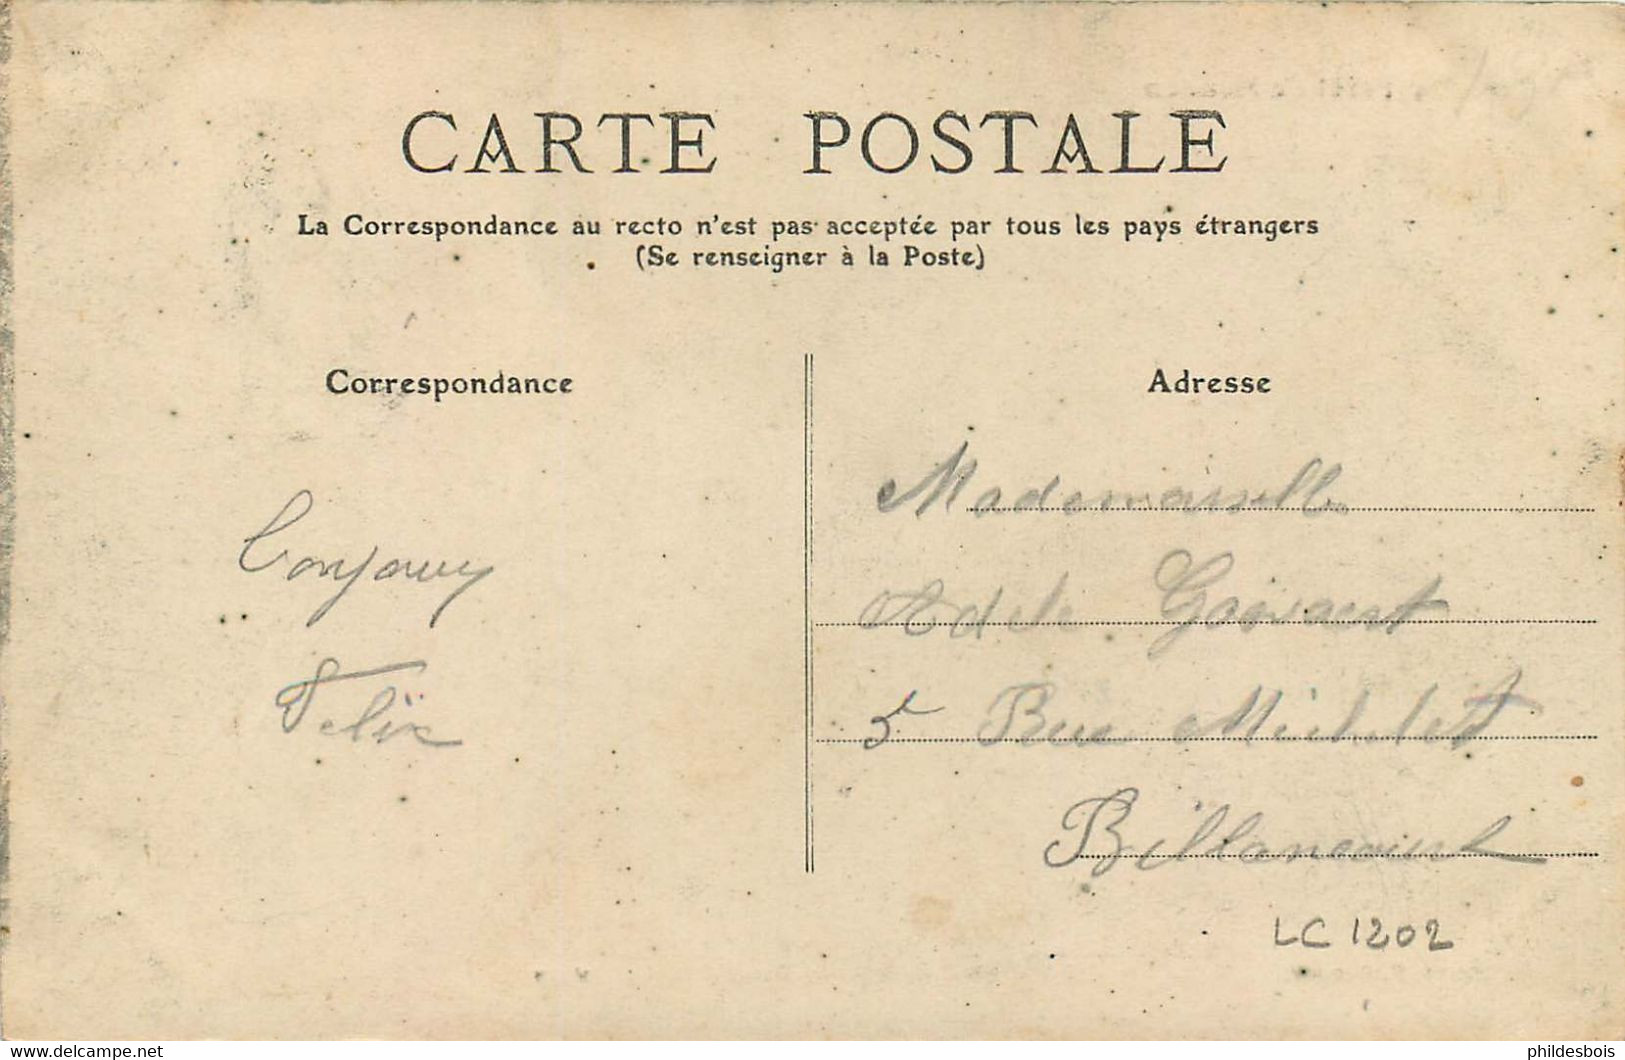 CARTE POSTALE
La Correspondance au recto n'est pas acceptée par tous les pays étrangers
(Se renseigner à la Poste)
Correspondance
Felix
Adresse
Mademoiselle
Adele
5 Rue Michelet
Billancourt
LC 1202
www.delcampe.net
phildesbois